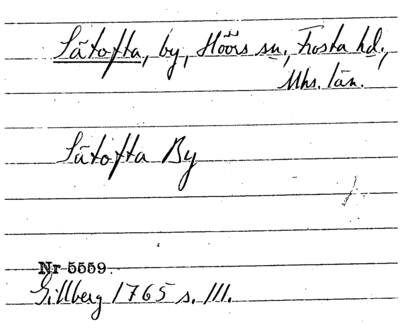 Sätofta, by, Höörs sn, Frosta hd.,
Mhs. län.
Sätofta By
Nr 5559.
Gillberg 1765 s. 111.